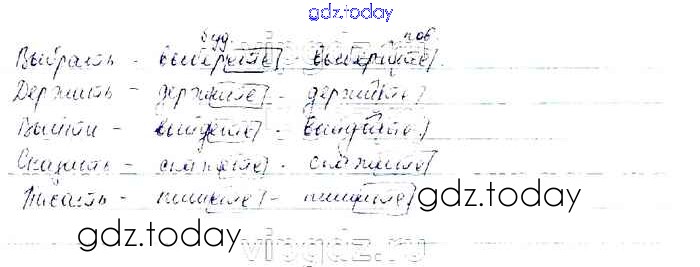 gdz.today
буд. пов.
Выбрать - выберете - выберите.
Держить - держите - держите
Выйти - выйдете - выйдите
Сказать - скажете - скажите
Писать - пишете - пишите
gdz.today
gdz.today
vipgdz.ru